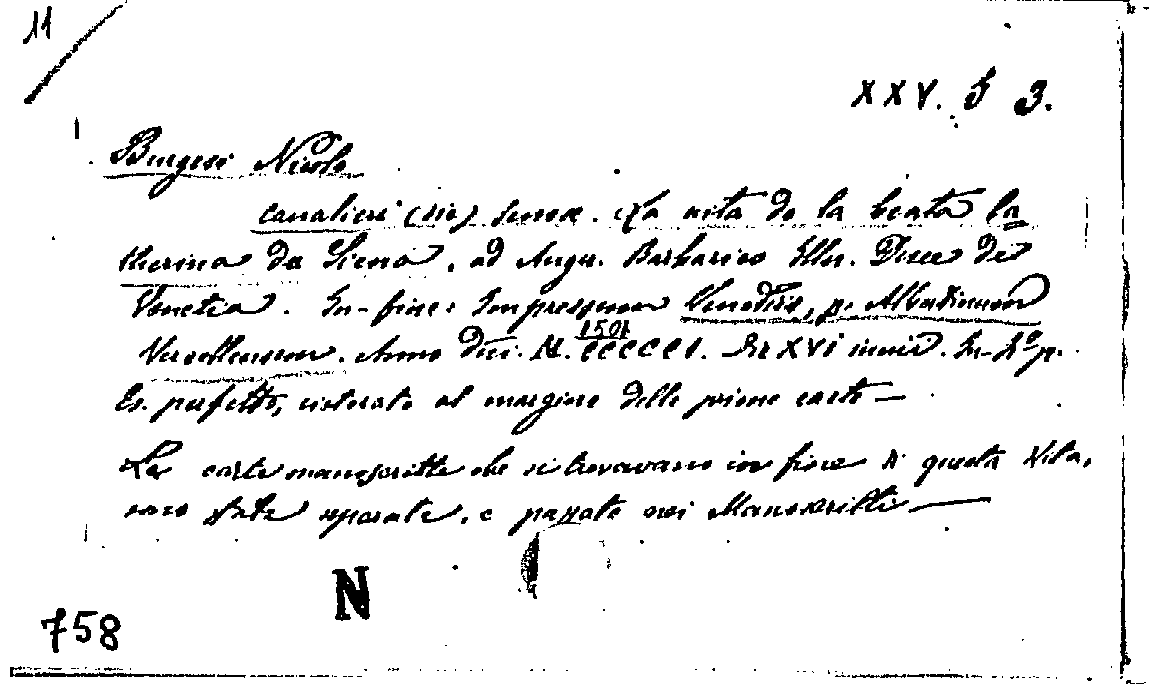 11
XXV. G 3.
Burgesi Nicolo
cavalieri (sic) senese. La vita de la beata Ca
therina da Siena, ad Augu. Barbarico Illu. Duce de
Venetia. In-fine: Impressum Venetiis, p. Albertinum
Vercellensem. Anno Dni. M. CCCCCI. 1501 Die XVI iunii. In-4° p.
Es. perfetto, ristorato al margine delle prime carte —
Le carte manoscritte che si trovavano in fine di questa Vita,
sono state separate, e passate nei Manoscritti —
N
758